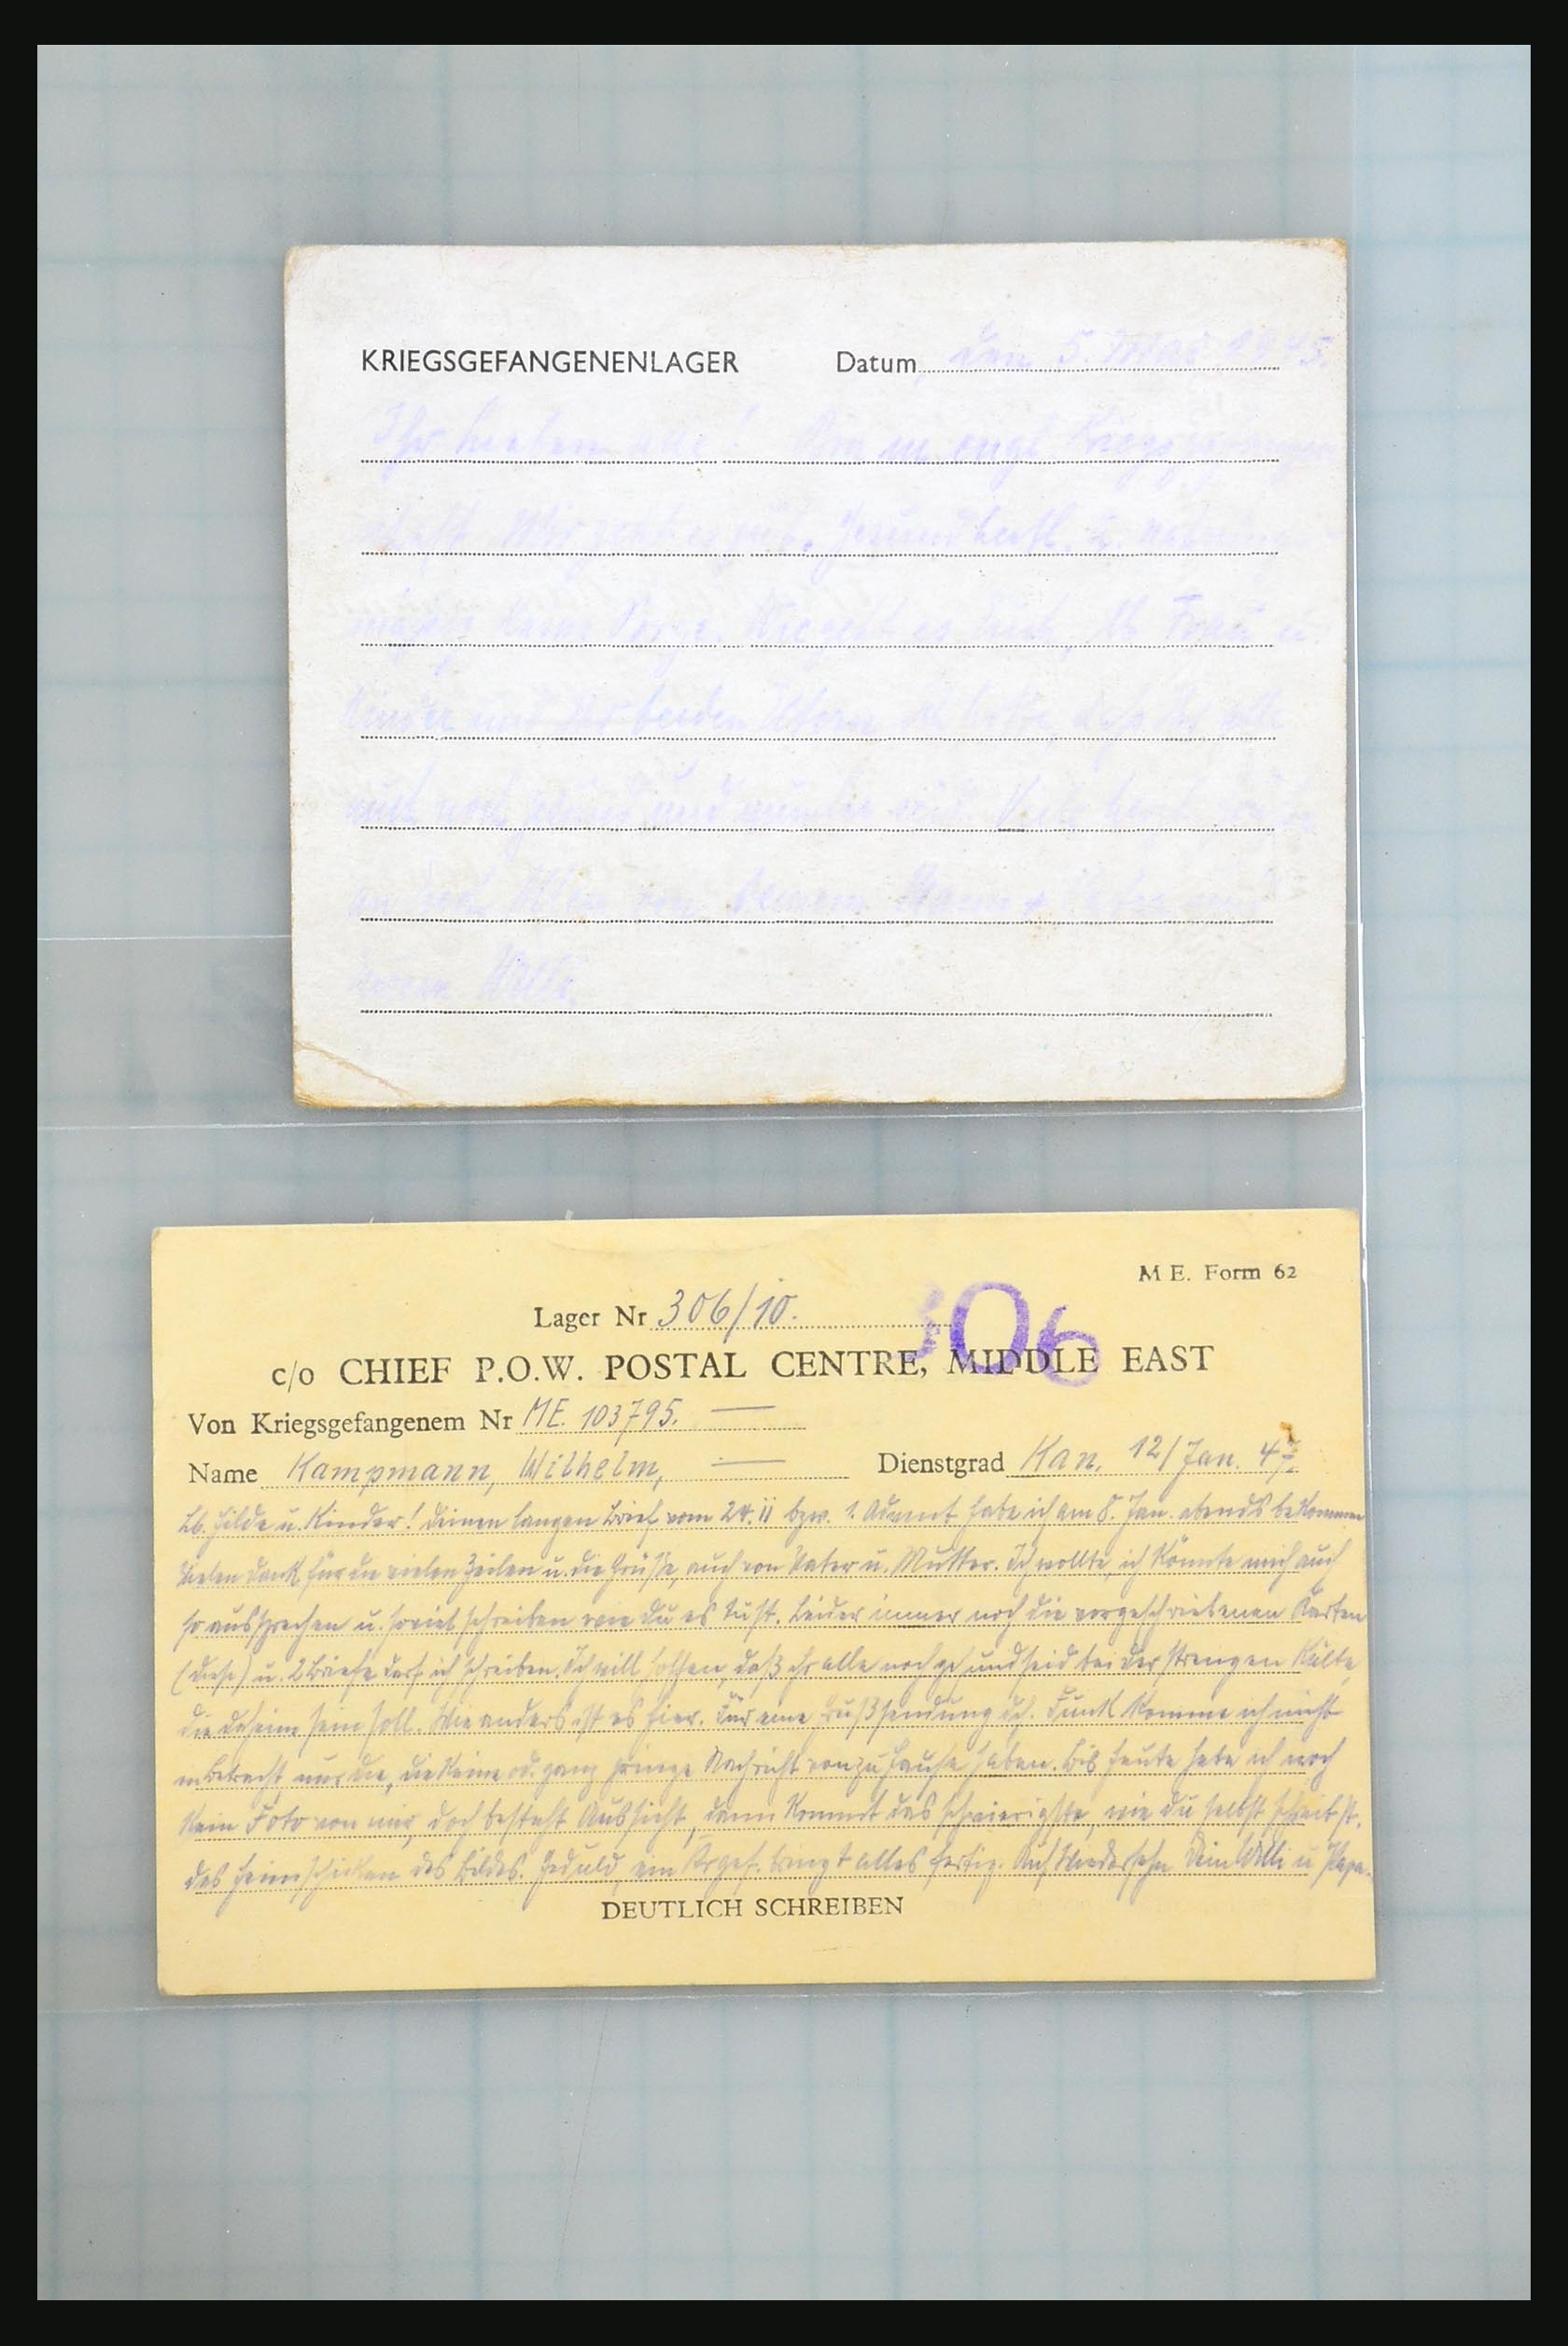 KRIEGSGEFANGENENLAGER Datum den 5. 1945.
Ihr Lieben alle! Bin in engl. Kriegsgefangen
schaft. Mir geht es gut. Gesundheitl. u.
keine Sorge. Wie geht es Euch, lb. Frau u.
Kinder und Ihr beiden Eltern. Ich hoffe, daß Ihr alle
auch noch gesund und munter seid.
Mann +
Willi.
M E. Form 62
Lager Nr 306/10.
306
c/o CHIEF P.O.W. POSTAL CENTRE, MIDDLE EAST
Von Kriegsgefangenem Nr ME. 103795. —
Name Kampmann, Wilhelm, — Dienstgrad Kan. 12/Jan. 47.
Lb. Hilde u. Kinder! Deinen langen Brief vom 24.11 bzw. 1. Advent habe ich am 8. Jan. abends bekommen
Vielen Dank für die vielen Zeilen u. die Grüße, auch von Vater u. Mutter. Ich wollte, ich könnte mich auch
so aussprechen u. soviel schreiben wie Du es tust. Leider immer noch die vorgeschriebenen Karten
(diese) u. 2 Briefe darf ich schreiben. Ich will hoffen, daß ihr alle noch gesund seid bei der strengen Kälte,
die daheim sein soll. Wie anders ist es hier. Für eine Grußsendung dch. Funk komme ich nicht
in Betracht, nur die, die keine od. ganz geringe Nachricht von zu Hause haben. Bis heute habe ich noch
kein Foto von mir, doch besteht Aussicht, dann kommt das schwierigste, wie du selbst schreibst,
das Heimschicken des Bildes. Geduld, ein Krgef. bringt alles fertig. Auf Wiedersehn Dein Willi u. Papa.
DEUTLICH SCHREIBEN